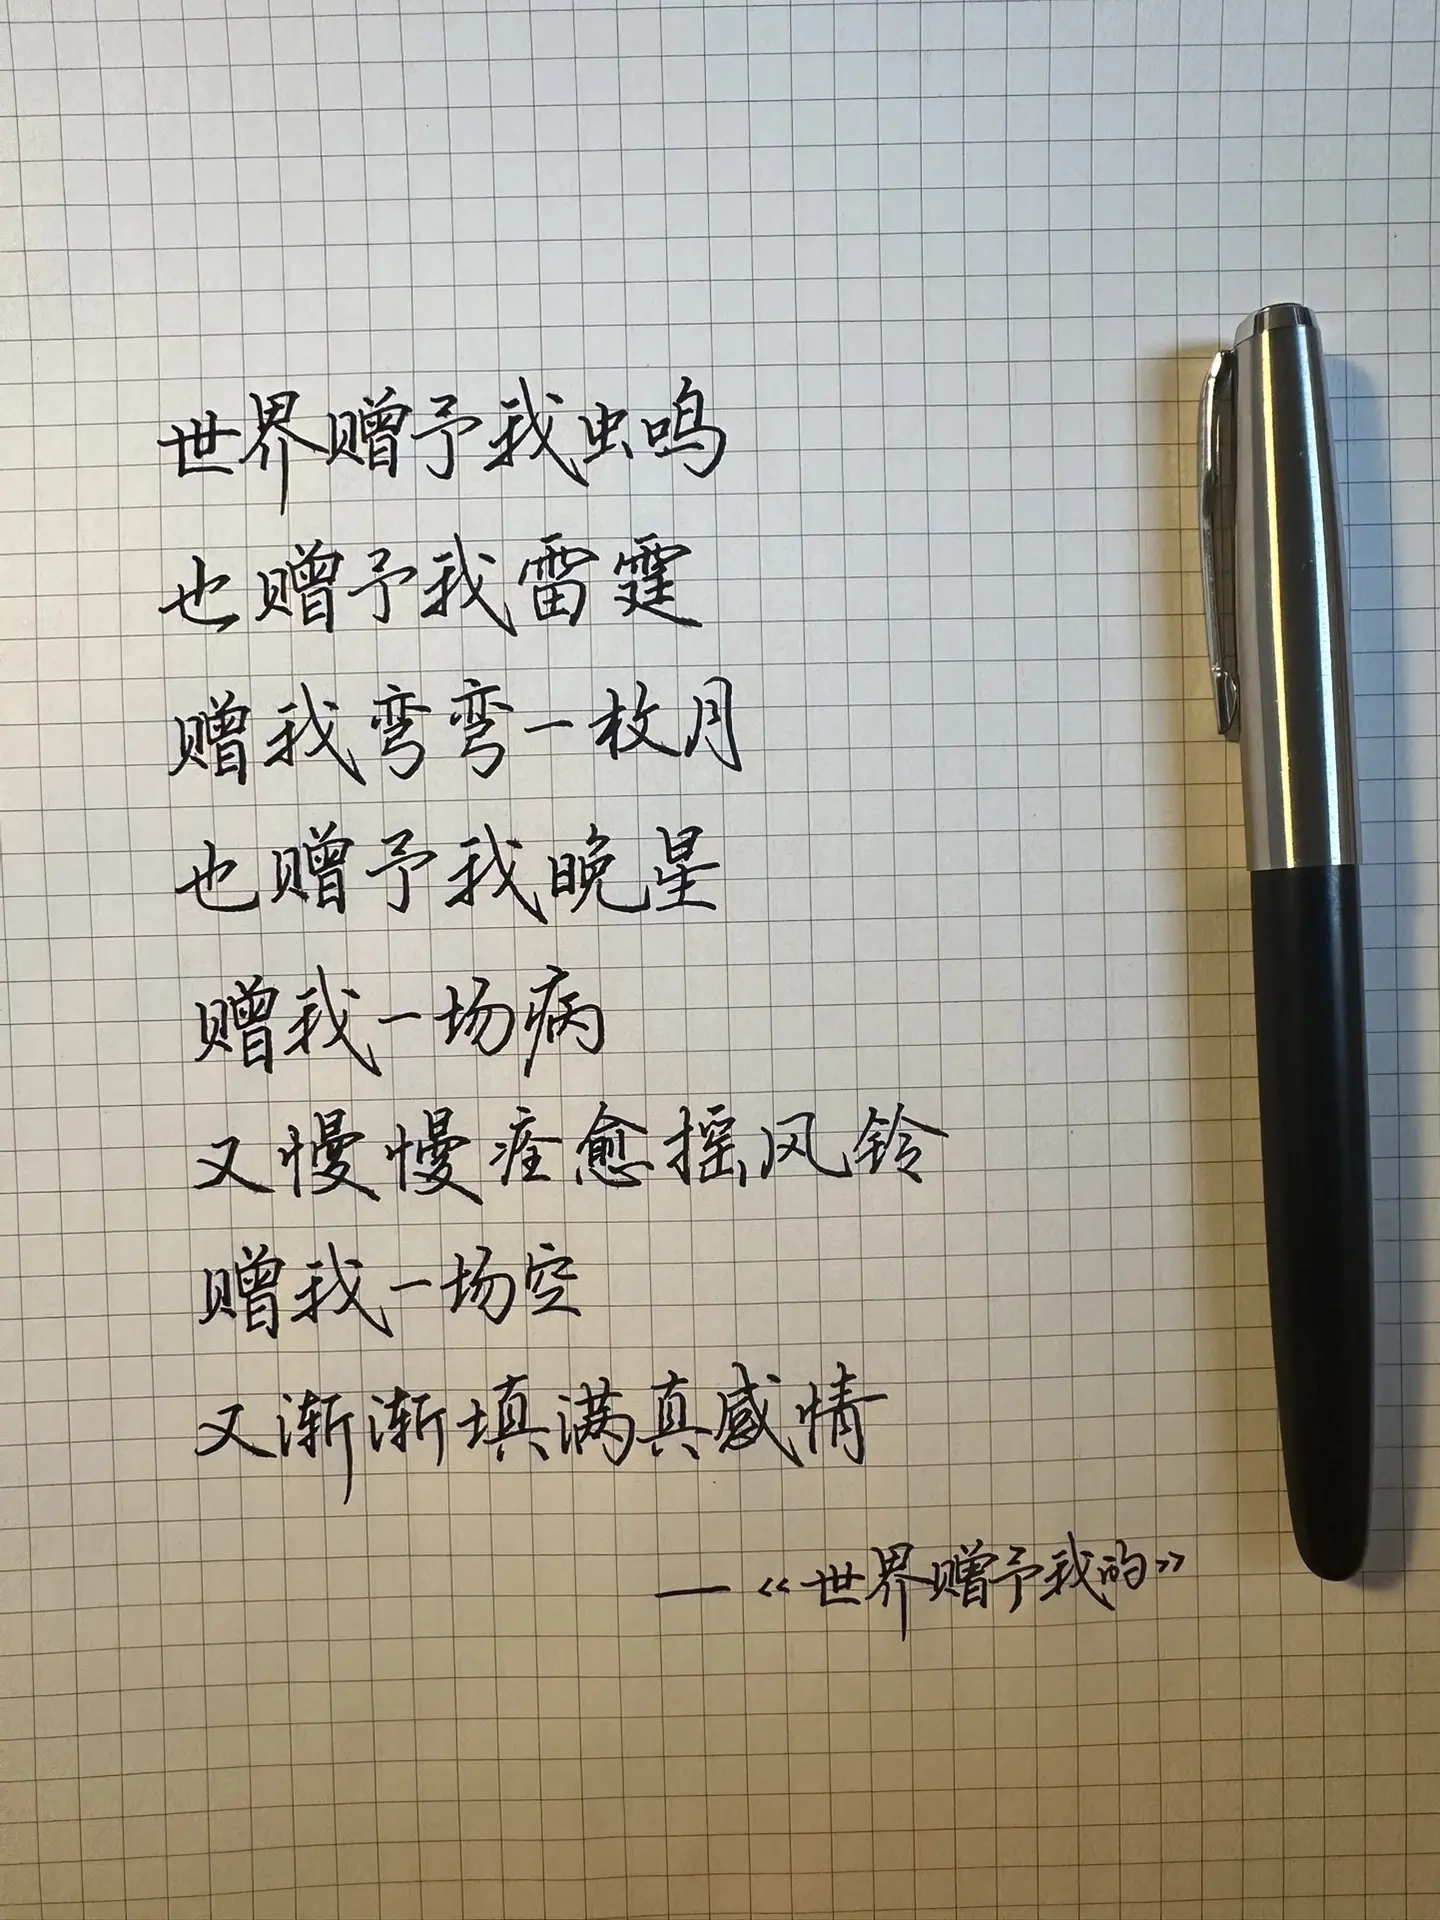 世界赠予我虫鸣
也赠予我雷霆
赠我弯弯一枚月
也赠予我晚星
赠我一场病
又慢慢痊愈摇风铃
赠我一场空
又渐渐填满真感情
——《世界赠予我的》